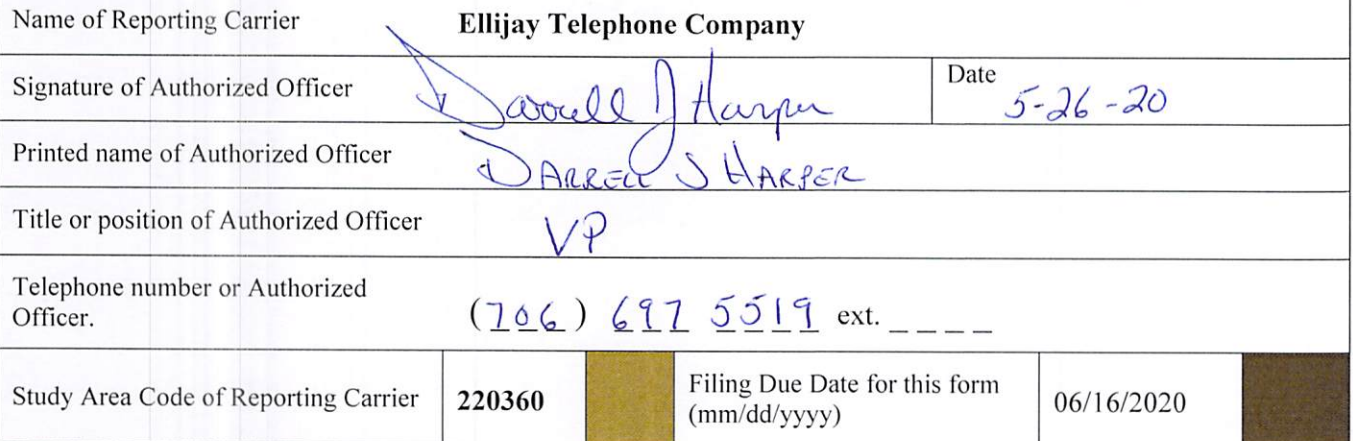 Name of Reporting Carrier Ellijay Telephone Company
Signature of Authorized Officer Darrell J Harper Date 5-26-20
Printed name of Authorized Officer DARRELL J HARPER
Title or position of Authorized Officer VP
Telephone number or Authorized
Officer. (706) 697 5519 ext. _ _ _ _
Study Area Code of Reporting Carrier 220360 Filing Due Date for this form
(mm/dd/yyyy) 06/16/2020